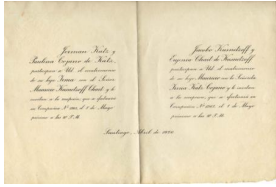 Jerman Katz y
Paulina Cogano de Katz,
participan a Ud. el matrimonio
de su hija Irma con el Señor
Mauricio Chait y le
invitan a la recepción que se efectuará en
Compañía Nº el 8 de Mayo
próximo a las 10 P.M.
Jacobo y
Eugenia Chait de
participan a Ud. el matrimonio
de su hijo Mauricio con la Señorita
Irma Katz Cogano y le invitan
a la recepción que se efectuará en
Compañía Nº el 8 de Mayo
próximo a las 10 P.M.
Santiago, Abril de